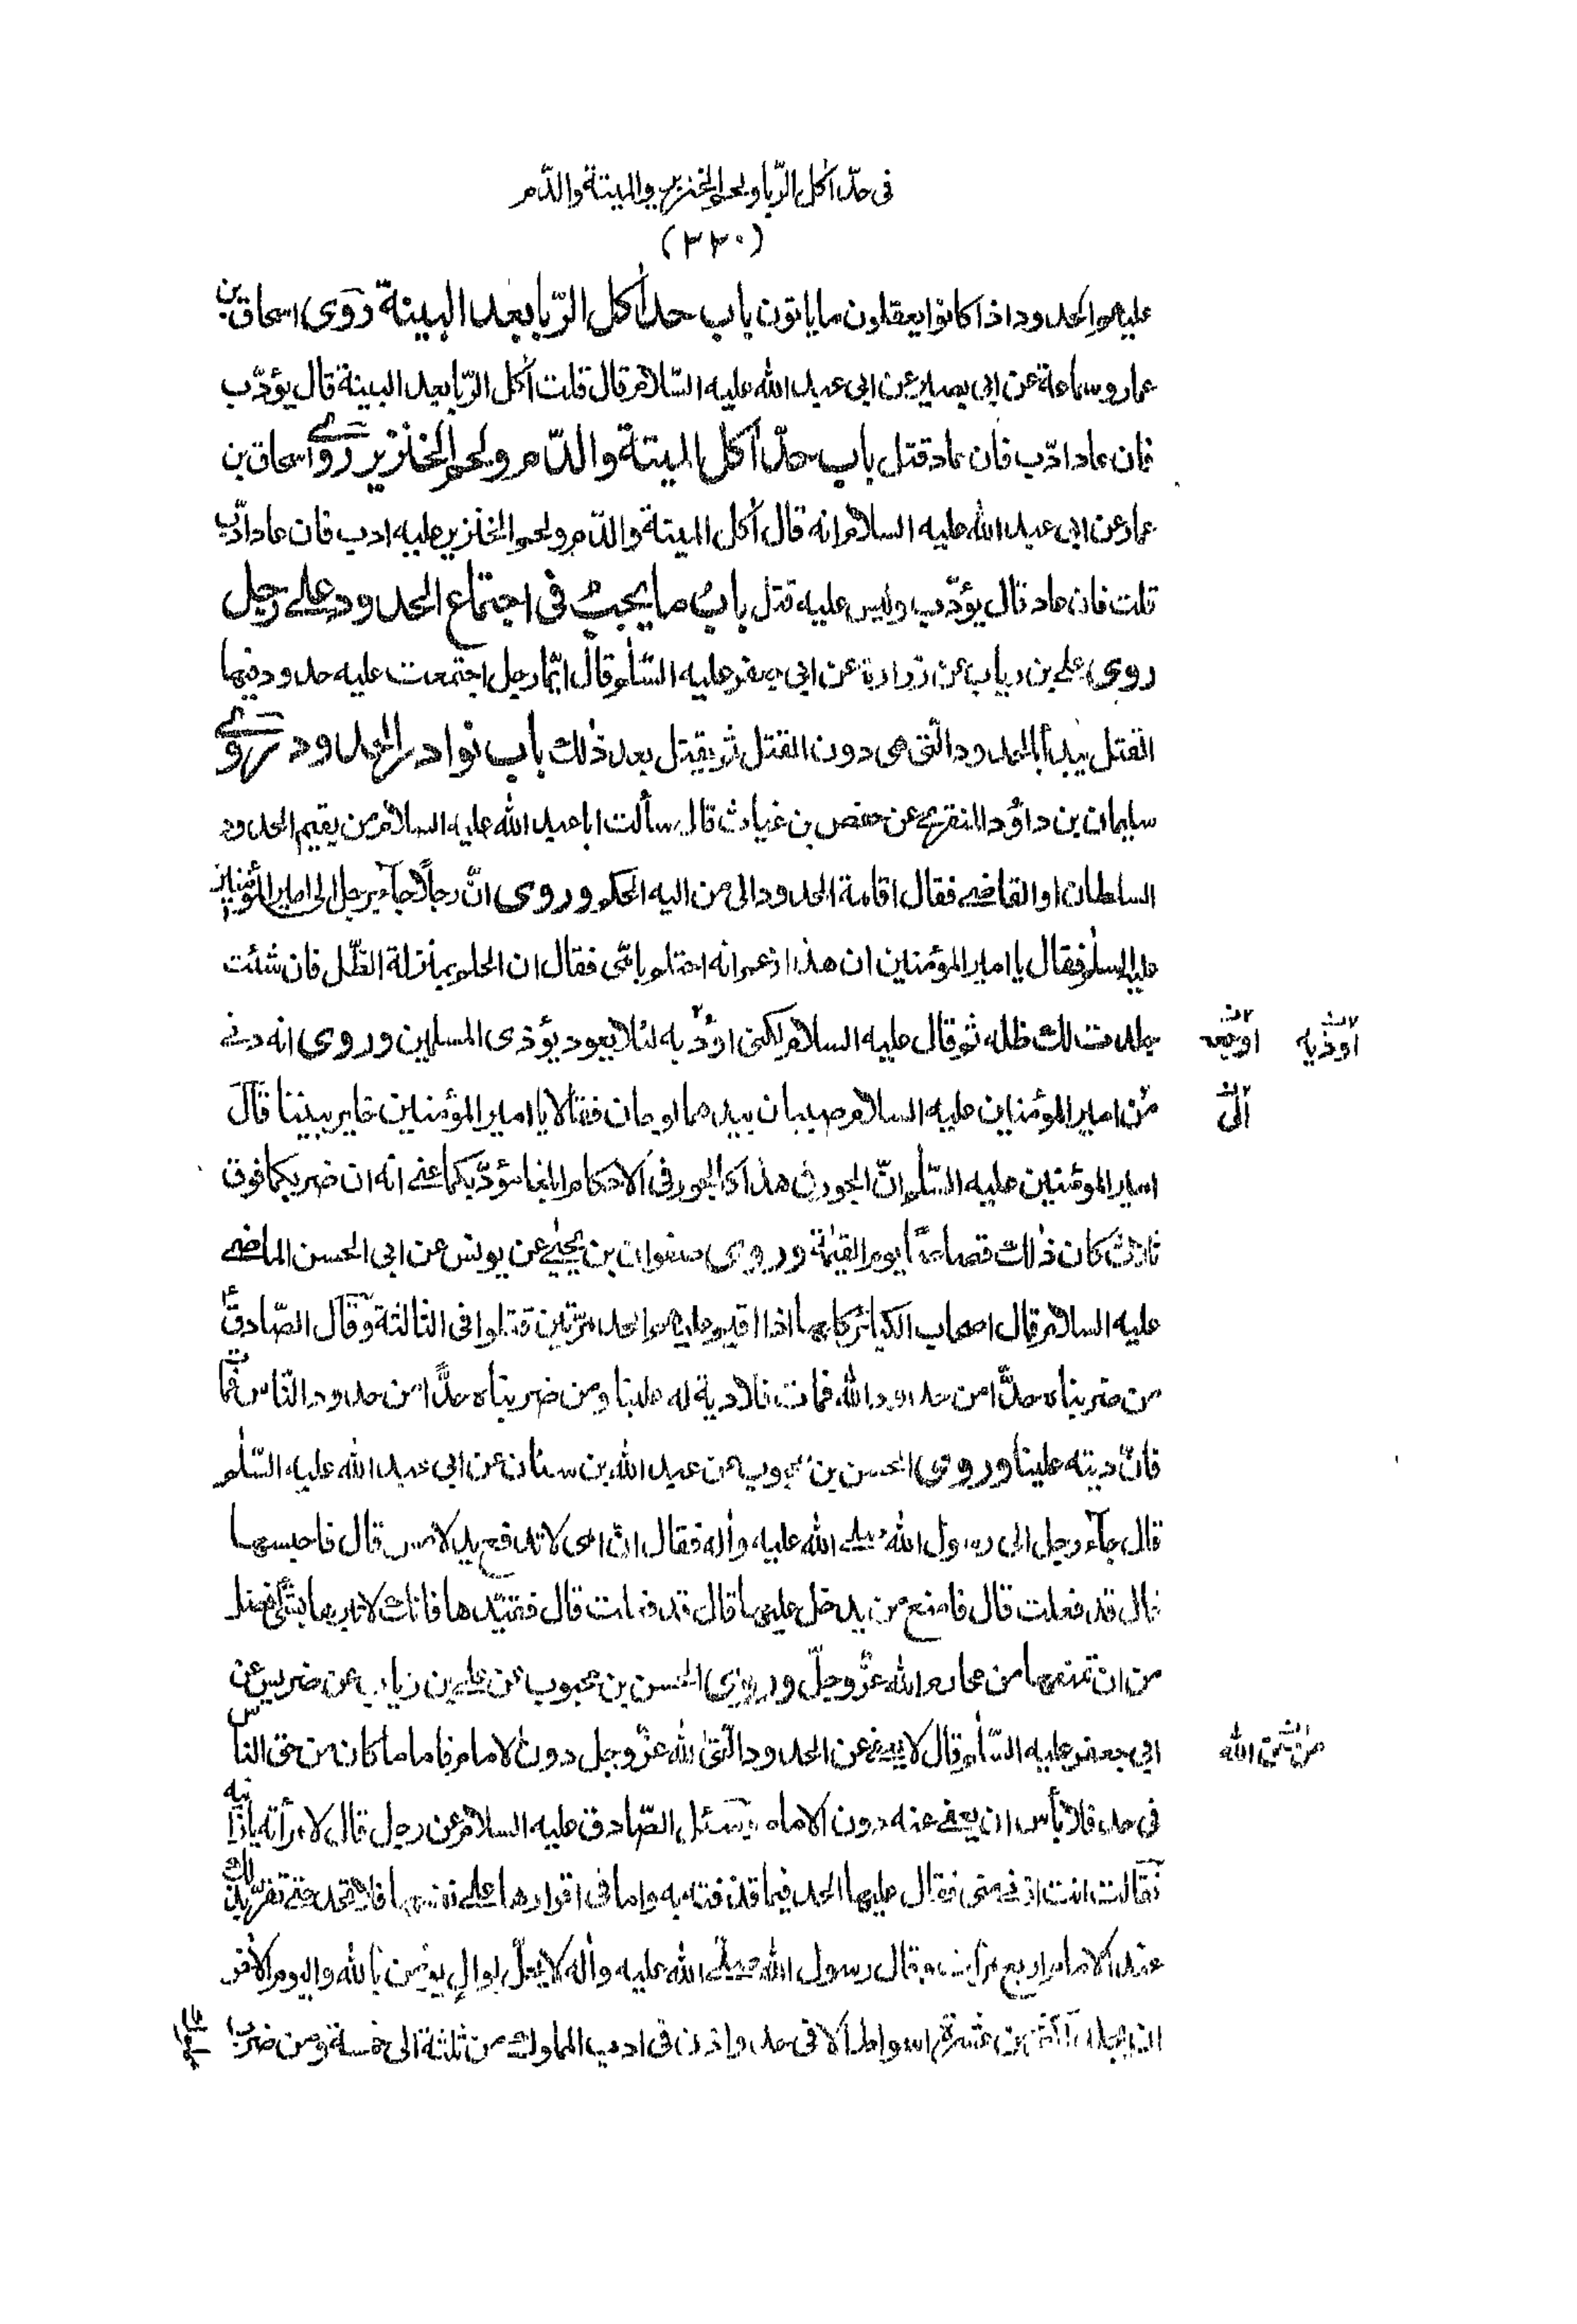 فى حدّ اكل الرّبا ولحم الخنزير والميتة والدّم
(٣٣٠)
عليهم الحدود اذا كانوا يعقلون ما ياتون باب حد اٰكل الرّبا بعد البينة روى اسحاق بن
عمار وسماعة عن ابى بصير عن ابى عبد الله عليه السّلام قال قلت اٰكل الرّبا بعد البينة قال يؤدّب
فان عاد ادّب فان عاد قتل باب حدّ اٰكل الميتة والدّم ولحم الخنزير روى اسحاق بن
عمار عن ابى عبد الله عليه السلام انه قال اٰكل الميتة والدّم ولحم الخنزير عليه ادب فان عاد ادّب
قلت فان عاد قال يؤدّب وليس عليه قتل باب ما يجب فى اجتماع الحدود على رجل
روى على بن رياب عن زرارة عن ابى جعفر عليه السّلٰم قال ايّما رجل اجتمعت عليه حدود فيها
القتل يبدأ بالحدود الّتى هى دون القتل ثم يقتل بعد ذٰلك باب نوادر الحدود روى
سليمان بن داؤد المنقرى عن حفص بن غياث قال سألت ابا عبد الله عليه السلام من يقيم الحدود
السلطان او القاضى فقال اقامة الحدود الى من اليه الحكم وروى انّ رجلاً جاء برجل الى امير المؤمنين
عليه السلٰم فقال يا امير المؤمنين ان هذا زعم انه احتلم بامّى فقال ان الحلم بمنزلة الظّل فان شئت
جلدت لك ظله ثم قال عليه السلام لكنى اؤدّبه لئلا يعود يؤذى المسلمين وروى انه دنى
اوجعه
اوذيه
من امير المؤمنين عليه السلام صبيان بيدهما لوحان فقالا يا امير المؤمنين خاير بيننا قال
الى
امير المؤمنين عليه السّلٰم انّ الجور فى هذا كالجور فى الاحكام ابلغا مؤدّبكما عنى انه ان ضربكما فوق
ثلاث كان ذٰلك قصاصًا يوم القيٰمة وروى صفوان بن يحيٰى عن يونس عن ابى الحسن الماضى
عليه السلام قال اصحاب الكبائر كلها اذا اقيم عليهم الحد مرّتين قتلوا فى الثالثة وقال الصّادق ع
من ضربناه حدًّا من حدود الله فمات فلا دية له علينا ومن ضربناه حدًّا من حدود النّاس فمات
فانّ ديته علينا وروى الحسن بن محبوب عن عبد الله بن سنان عن ابى عبد الله عليه السّلٰم
قال جاء رجل الى رسول الله صلى الله عليه واٰله فقال انّ امى لا تدفع يد لامس قال فاحبسها
قال قد فعلت قال فامنع من يدخل عليها قال قد فعلت قال فقيّدها فانك لا تبرها بشئ افضل
من ان تمنعها من محارم الله عزّ وجلّ وروى الحسن بن محبوب عن على بن رياب عن ضريس عن
ابى جعفر عليه السّلٰم قال لا يعفى عن الحدود الّتى لله عزّ وجل دون الامام فاما ما كان من حق الناس
من حق الله
فى حد فلا بأس ان يعفى عنه دون الامام وسئل الصّادق عليه السلام عن رجل قال لامرأته يا زانية
فقالت انت ازنى منى فقال عليها الحد فيما قذفته به واما فى اقرارها على نفسها فلا تحد حتى تقر بذلك
عند الامام اربع مرات وقال رسول الله صلّى الله عليه واٰله لا يحلّ لوالٍ يؤمن بالله واليوم الاٰخر
ان يجلد اكثر من عشرة اسواط الا فى حد واذن فى ادب المملوك من ثلثة الى خمسة ومن ضرب